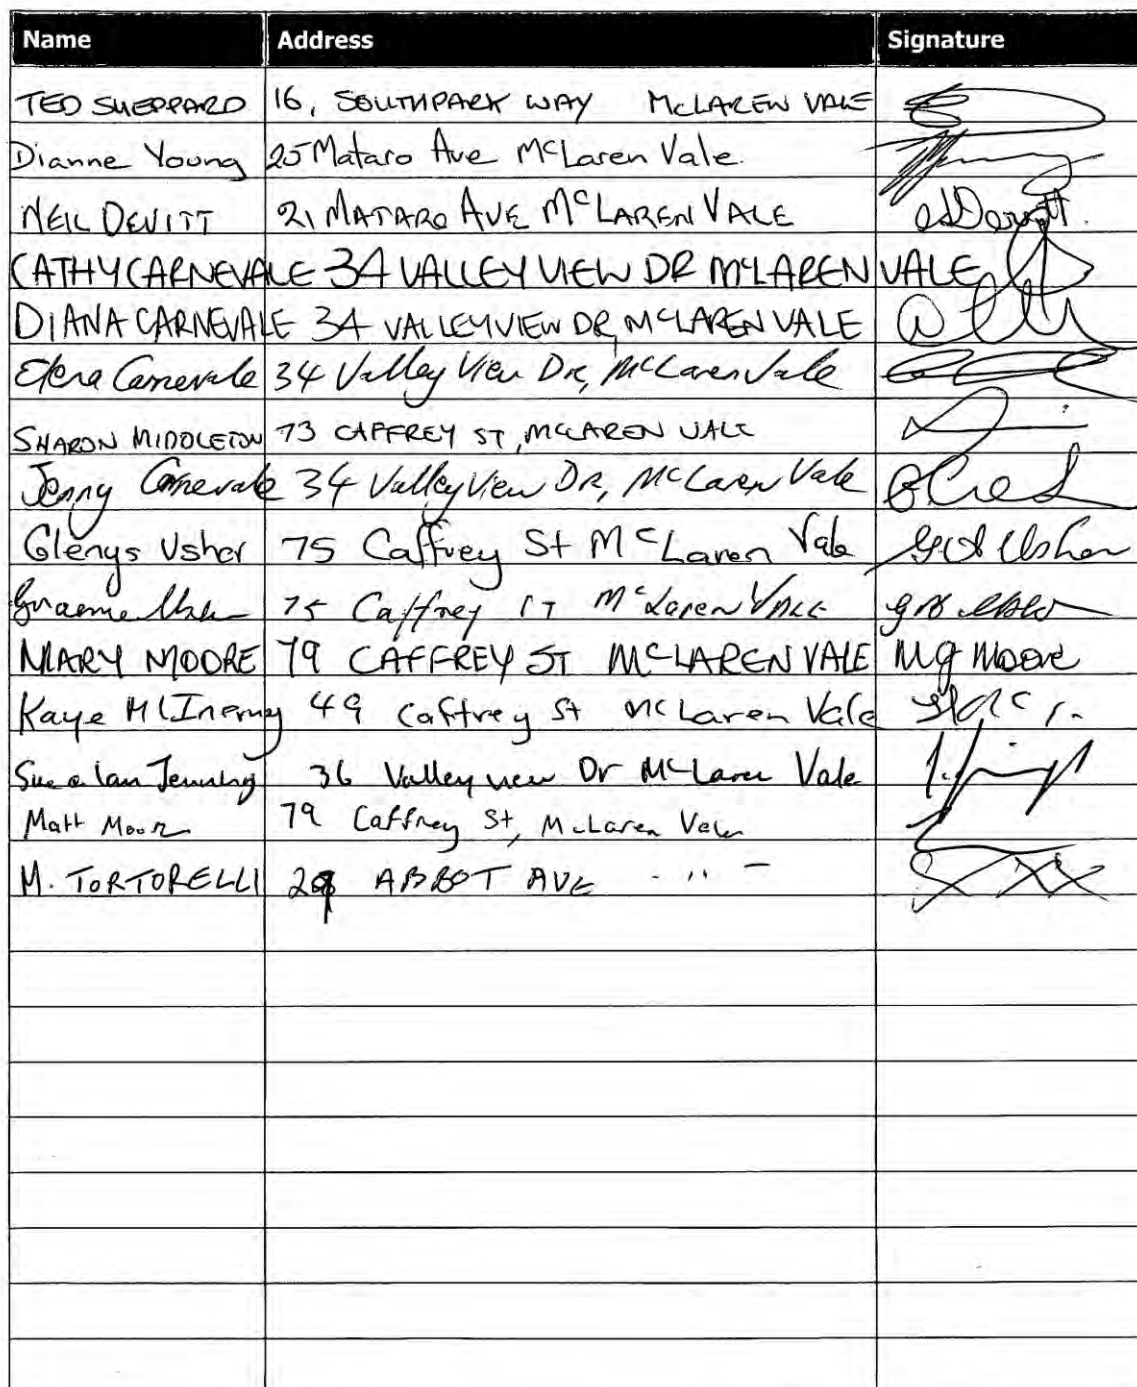 Name Address Signature
TED SHEPPARD 16, SOUTHPARK WAY McLAREN VALE
Dianne Young 25 Mataro Ave McLaren Vale.
NEIL DEVITT 21 MATARO AVE McLAREN VALE
CATHY CARNEVALE 34 VALLEY VIEW DR McLAREN VALE
DIANA CARNEVALE 34 VALLEY VIEW DR, McLAREN VALE
Elena Carnevale 34 Valley View Dr, McLaren Vale
SHARON MIDDLETON 73 CAFFREY ST, McLAREN VALE
Jenny Carnevale 34 Valley View DR, McLaren Vale
Glenys Usher 75 Caffrey St McLaren Vale Usher
Graeme Usher 75 Caffrey ST McLaren VALE
MARY MOORE 79 CAFFREY ST McLAREN VALE MG Moore
Kaye McInerny 49 Caffrey St McLaren Vale
Sue & Ian Jennings 36 Valley view Dr McLaren Vale
Matt Moore 79 Caffrey St, McLaren Vale
M. TORTORELLI ABBOT AVE - " -